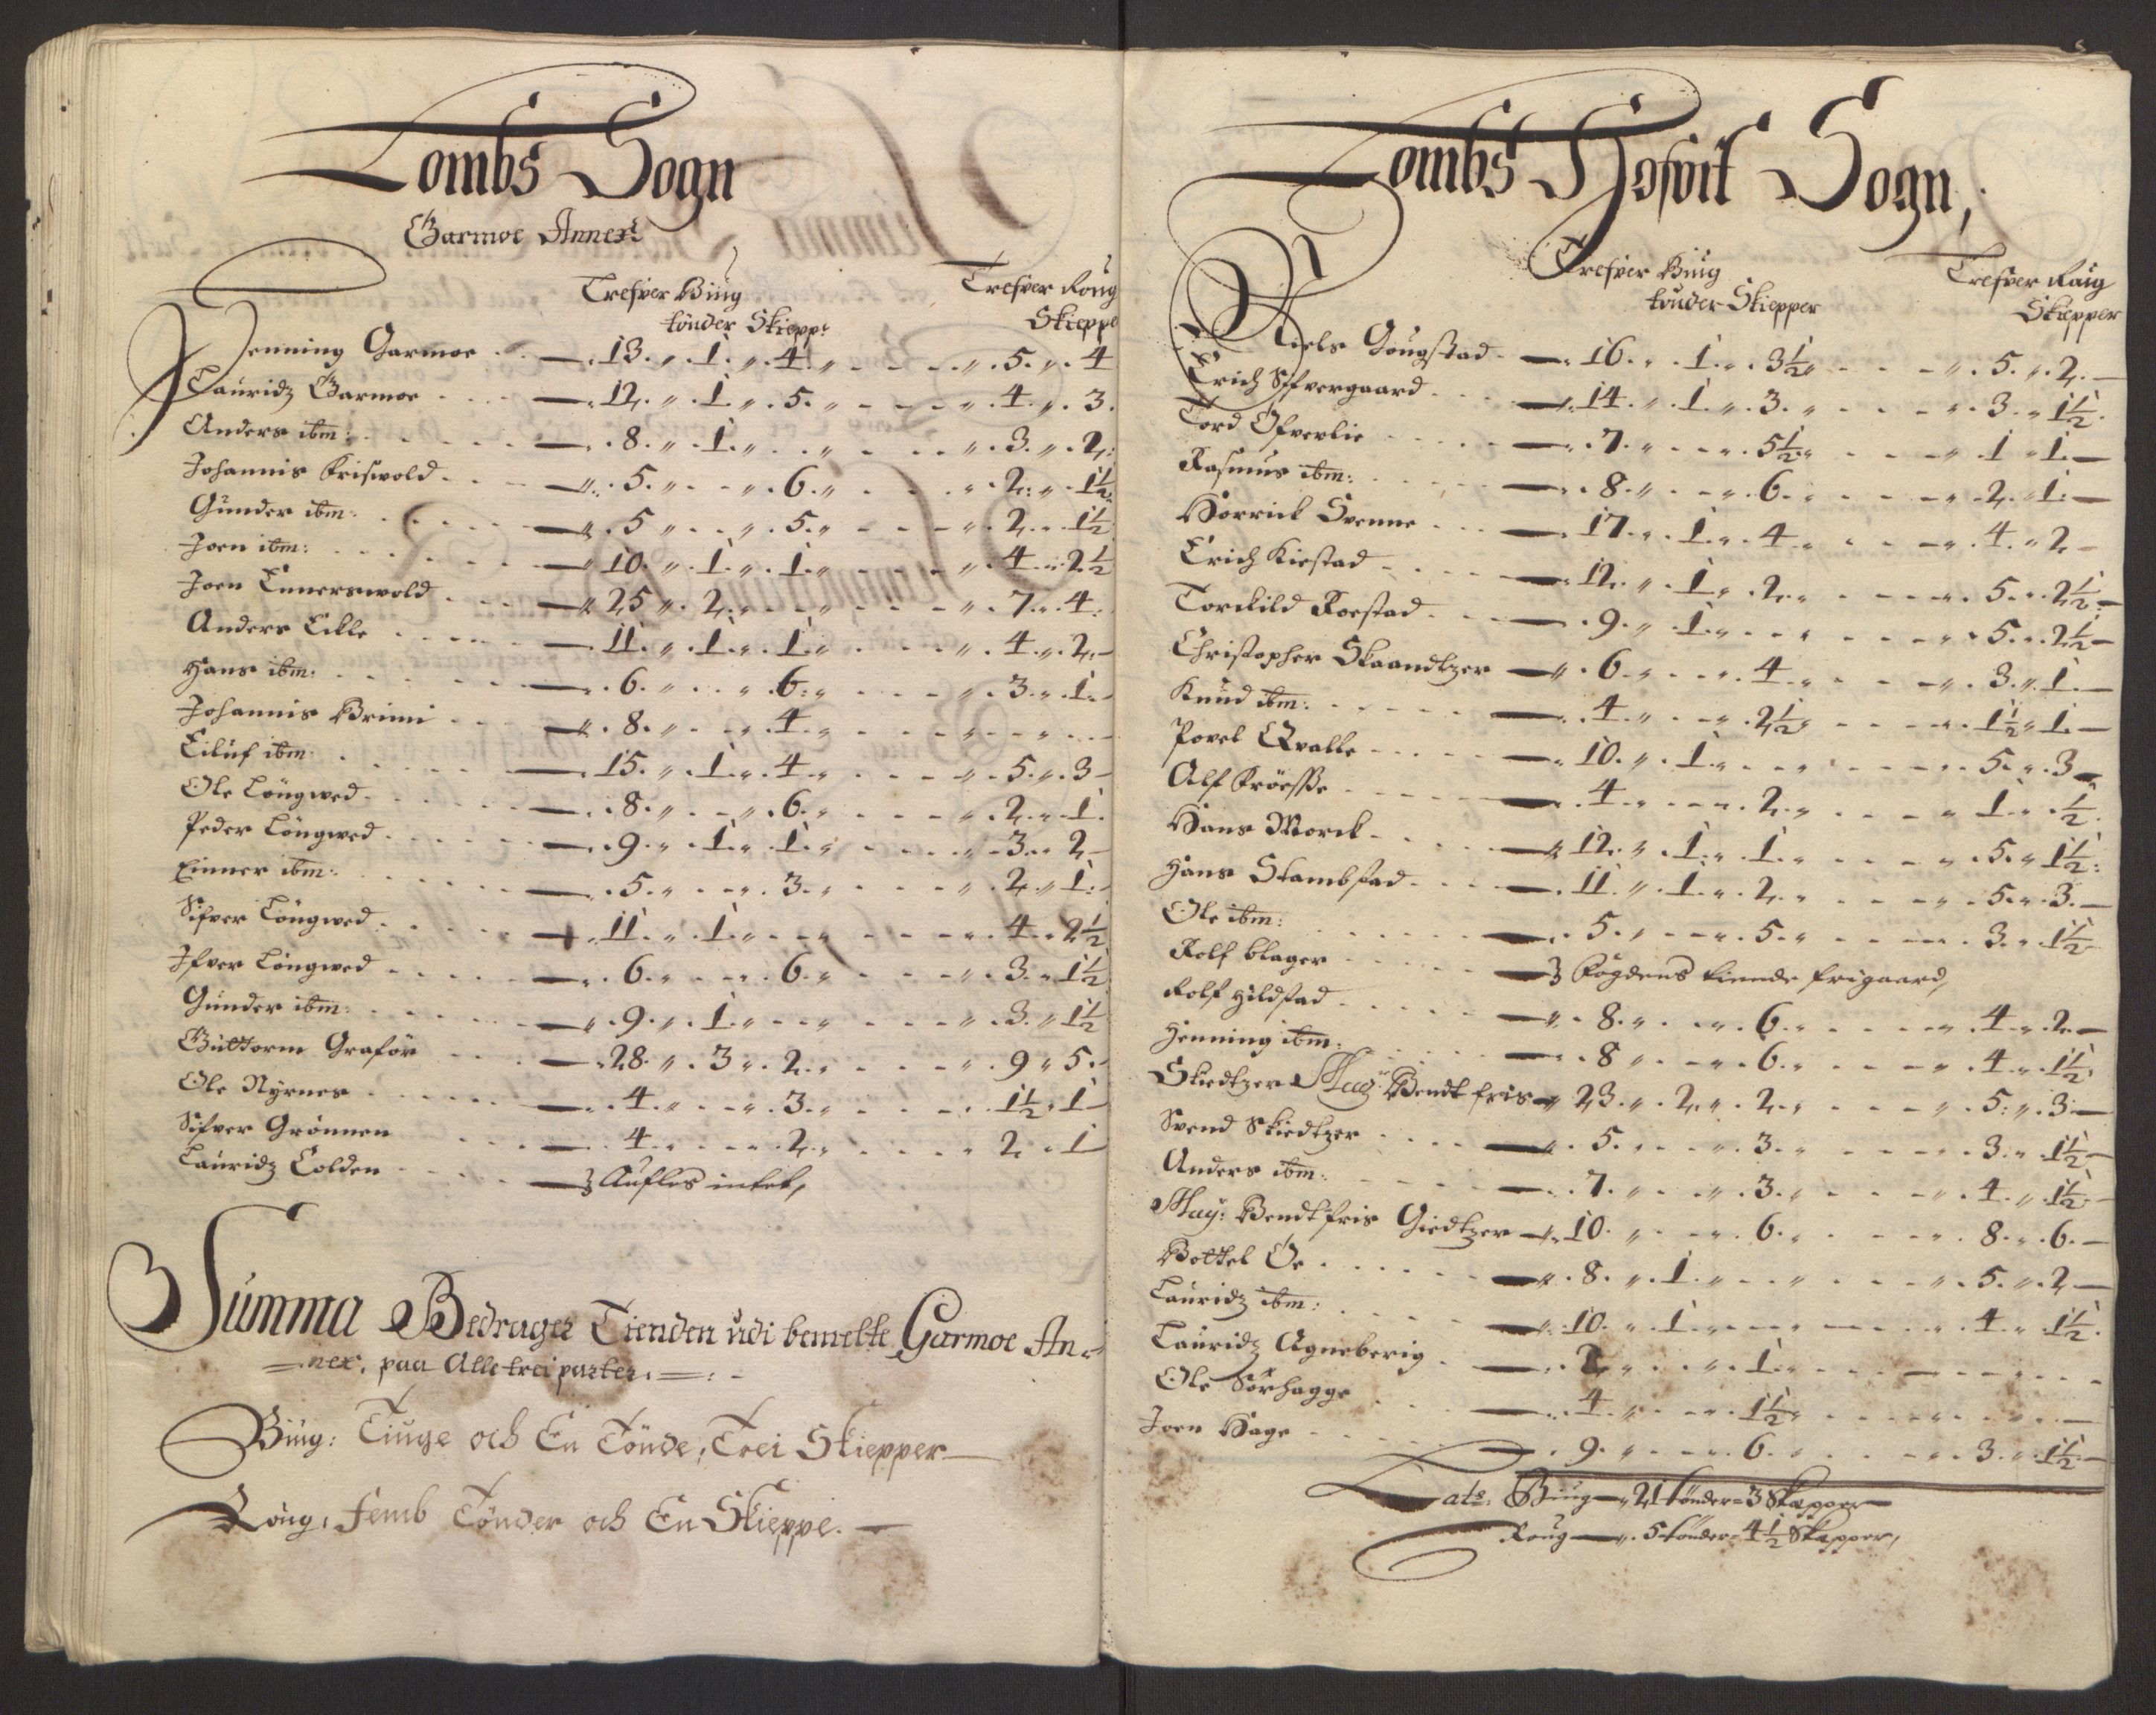 Lombs Sogn
Garmoe Annext
Trefver Biug Trefver Roug
tönder Skiepp: Skieppe
Henning Garmoe — 13 „ 1 „ 4 „ - - „ 5 „ 4
Lauridz Garmoe — 12 „ 1 „ 5 „ - - „ 4 „ 3
Anders ibm: — 8 „ 1 „ - „ - - „ 3 „ 2
Johannis Friswold — 5 „ - „ 6 „ - - „ 2 „ 1½
Gunder ibm: — 5 „ - „ 5 „ - - „ 2 „ 1½
Joen ibm: — 10 „ 1 „ 1 „ - - „ 4 „ 2½
Joen Ennerswold — 25 „ 2 „ - „ - - „ 7 „ 4
Anders Lille — 11 „ 1 „ 1 „ - - „ 4 „ 2
Hans ibm: — 6 „ - „ 6 „ - - „ 3 „ 1
Johannis Brimi — 8 „ - „ 4 „ - - „ - „ -
Eiluf ibm: — 15 „ 1 „ 4 „ - - „ 5 „ 3
Ole Löngwed — 8 „ - „ 6 „ - - „ 2 „ 1
Peder Löngwed — 9 „ 1 „ 1 „ - - „ 3 „ 2
Einner ibm: — 5 „ - „ 3 „ - - „ 2 „ 1
Sifver Löngwed — 11 „ 1 „ - „ - - „ 4 „ 2½
Ifver Löngwed — 6 „ - „ 6 „ - - „ 3 „ 1½
Gunder ibm: — 9 „ 1 „ - „ - - „ 3 „ 1½
Guttorm Graför — 28 „ 3 „ 2 „ - - „ 9 „ 5
Ole Nyrnes — 4 „ - „ 3 „ - - „ 1½ „ 1
Sifver Grönnen — 4 „ - „ 2 „ - - „ 2 „ 1
Lauridz Colden — Aufles intet,
Summa Bedrager Tienden udi bemelte Garmoe An-
nex, paa Alle trei parter, —
Biug: Tiuge och En Tönde, Trei Skiepper —
Roug, Femb Tönder och En Skieppe. —
Lombs Hofvit Sogn,
Trefver Biug Trefver Roug
tönder Skiepper Skiepper
Niels Gougstad — 16 „ 1 „ 3½ „ - - „ 5 „ 2
Erich Sifvergaard — 14 „ 1 „ 3 „ - - „ 3 „ 1½
Tord Öfverlie — 7 „ - „ 5½ „ - - „ 1 „ 1
Rasmus ibm: — 8 „ - „ 6 „ - - „ 2 „ 1
Horrick Svenne — 17 „ 1 „ 4 „ - - „ 4 „ 2
Erich Kiestad — 12 „ 1 „ 2 „ - - „ 5 „ 2½
Torckild Roestad — 9 „ 1 „ - „ - - „ 5 „ 2½
Christopher Skaandtzer — 6 „ - „ 4 „ - - „ 3 „ 1
Knud ibm: — 4 „ - „ 2½ „ - - „ 1½ „ 1
Povel Qvalle — 10 „ 1 „ - „ - - „ 5 „ 3
Alf Kröesse — 4 „ - „ 2 „ - - „ 1 „ ½
Hans Morck — 12 „ 1 „ 1 „ - - „ 5 „ 1½
Hans Stambstad — 11 „ 1 „ 2 „ - - „ 5 „ 3
Ole ibm: — 5 „ - „ 5 „ - - „ 3 „ 1½
Rolf Blager — Fogdens tiende frigaard,
Rolf Hildstad — 8 „ - „ 6 „ - - „ 4 „ 2
Henning ibm: — 8 „ - „ 6 „ - - „ 4 „ 1½
Skiedtzer Mag: Bendt Fris — 23 „ 2 „ 2 „ - - „ 5 „ 3
Svend Skiedtzer — 5 „ - „ 3 „ - - „ 3 „ 1½
Anders ibm: — 7 „ - „ 3 „ - - „ 4 „ 1½
Mag: Bendt Fris Giedtzer — 10 „ - „ 6 „ - - „ 8 „ 6
Bottel Öe — 8 „ 1 „ - „ - - „ 5 „ 2
Lauridz ibm: — 10 „ 1 „ - „ - - „ 4 „ 1½
Lauridz Agneberig — 2 „ - „ 1 „ - - - -
Ole Sörhagge — 4 „ - „ 1½ „ - - - -
Joen Hage — 9 „ - „ 6 „ - - „ 3 „ 1½
Lats: Biug — 21 tönder 3 Skiepper
Roug — 5 tönder 4½ Skiepper,